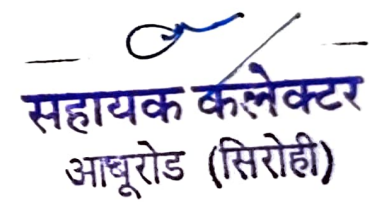 सहायक कलेक्टर
आबूरोड (सिरोही)